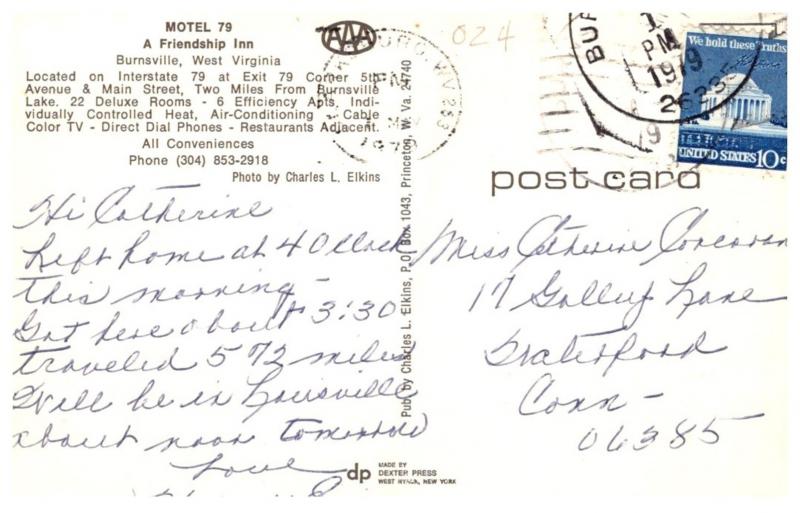 MOTEL 79
A Friendship Inn
Burnsville, West Virginia
Located on Interstate 79 at Exit 79 Corner 5th
Avenue & Main Street, Two Miles From Burnsville
Lake. 22 Deluxe Rooms - 6 Efficiency Apts, Indi-
vidually Controlled Heat, Air-Conditioning - Cable
Color TV - Direct Dial Phones - Restaurants Adjacent.
All Conveniences
Phone (304) 853-2918
Photo by Charles L. Elkins
AAA
024
PM
1979
We hold these Truths
UNITED STATES 10c
post card
Hi Catherine
Left home at 4 Oclock
this morning -
Got here about 3:30
traveled 572 miles
Will be in Louisville
about noon tomorrow
Love
Pub. by Charles L. Elkins, P.O. Box 1043, Princeton, W. Va. 24740
Miss Catherine Corcoran
17 Gallup Lane
Waterford
Conn -
06385
dp
MADE BY
DEXTER PRESS
WEST NYACK, NEW YORK